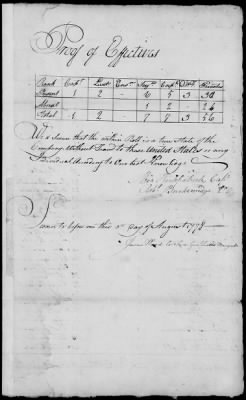 Proof of Effectives
Rank Capt Lieut Ens Serjt Corpl Drum Privates
Present 1 2 - 6 5 3 30
Absent - - - 1 2 - 26
Total 1 2 - 7 7 3 56
We Swear that the within Roll is a true State of the
Company without Fraud to these United States or any
Individual According to Our best Knowledge
Capt
Sworn to before me this day of August 1778